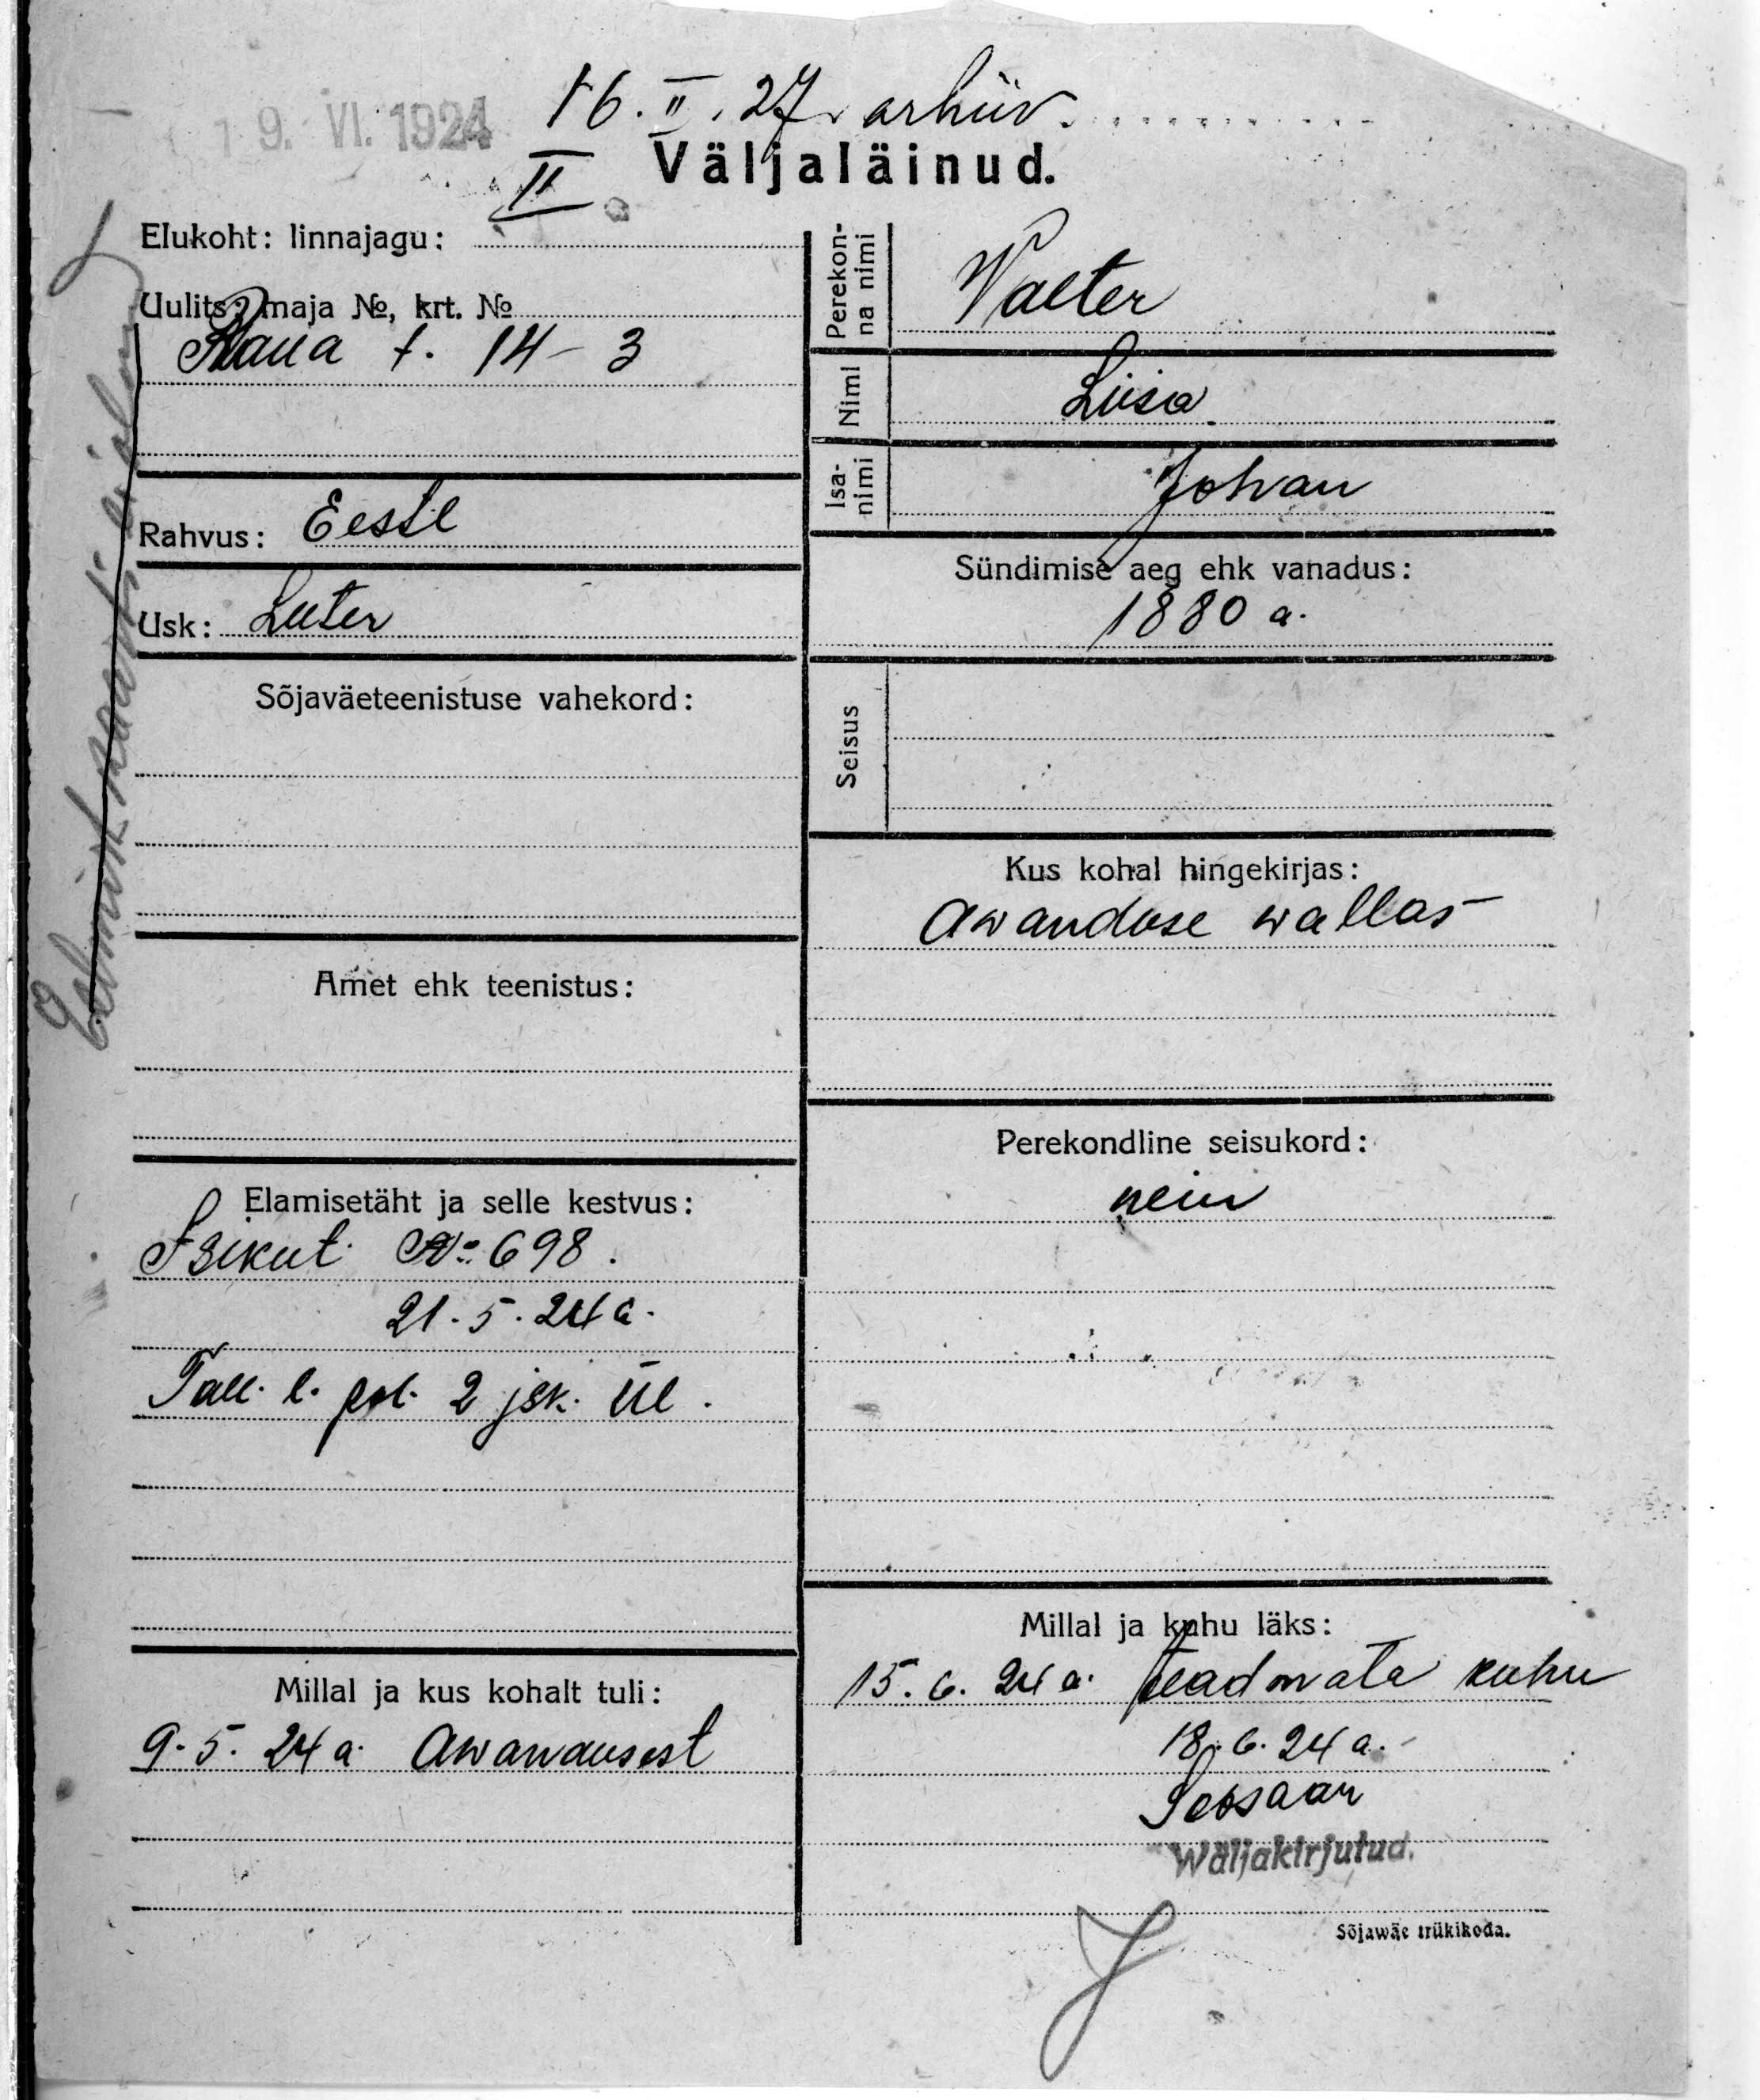 19. VI. 1924
16. II. 27. arhiiv.
Väljaläinud.
Elukoht: linnajagu: II
Uulits, maja №, krt. №
Raua t. 14 - 3
Rahvus: Eesti
Usk: Luter
Sõjaväeteenistuse vahekord:
Amet ehk teenistus:
Elamisetäht ja selle kestvus:
Isikut. № 698.
21. 5. 24 a.
Tall. l. pol. 2 jsk. ül.
Millal ja kus kohalt tuli:
9. 5. 24 a. Awandusest
Perekon-
na nimi
Walter
Nimi
Liisa
Isa-
nimi
Johan
Sündimise aeg ehk vanadus:
1880 a.
Seisus
Kus kohal hingekirjas:
Awanduse wallas
Perekondline seisukord:
nein
Millal ja kuhu läks:
15. 6. 24 a. teadmata kuhu
18. 6. 24 a.
Wäljakirjutud.
Sõjawäe trükikoda.